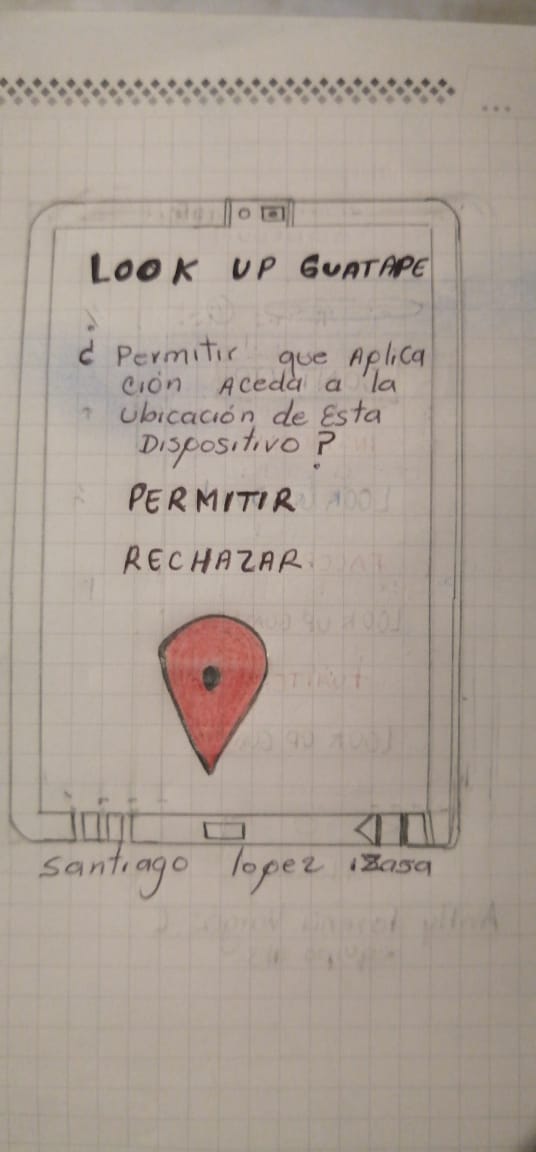 LOOK UP GUATAPE
¿ Permitir que Aplica
ción Aceda a la
Ubicación de Esta
Dispositivo?
PERMITIR
RECHAZAR
santiago lopez izasa